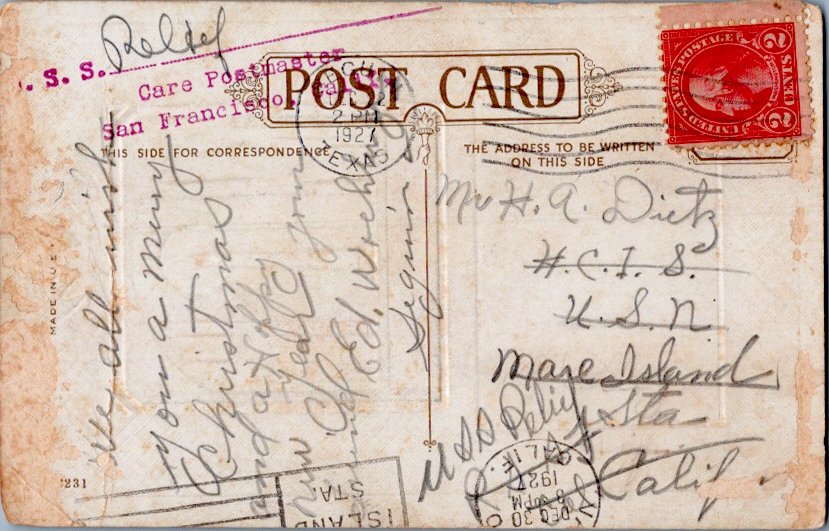 . S. S. Relief
Care Postmaster
San Francisco, Calif.
POST CARD
THIS SIDE FOR CORRESPONDENCE
THE ADDRESS TO BE WRITTEN
ON THIS SIDE
2 PM
1927
TEXAS
UNITED STATES POSTAGE
2 CENTS 2
We all wish
You a merry
Christmas
and a Happy
New Year
your
Friend Ed.
Seguin
Mr H. A. Dietz
H.C.I.S.
U.S.N
Mare Island
Sta
Calif
USS Relief
MADE IN U.S.
231
ISLAND
STA.
DEC 30
1927
CALIF.